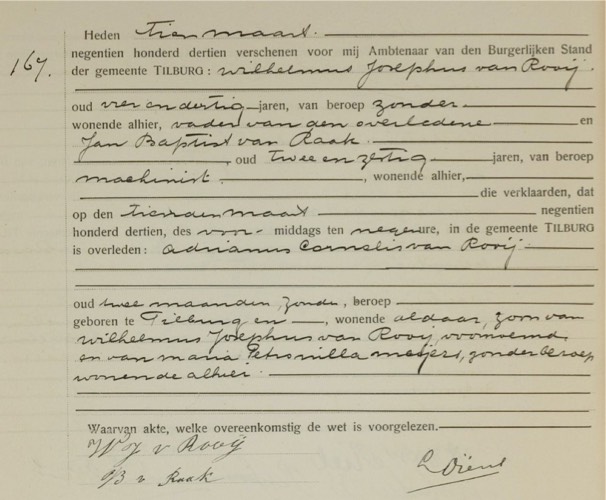 Heden tien maart
negentien honderd dertien verschenen voor mij Ambtenaar van den Burgerlijken Stand
167.
der gemeente TILBURG: Wilhelmus Josephus van Rooij.
oud vier en dertig jaren, van beroep zonder
wonende alhier, vader van den overledene en
Jan Baptist van Raak.
, oud twee en zestig jaren, van beroep
machinist. , wonende alhier,
die verklaarden, dat
op den tienden maart negentien
honderd dertien, des voor- middags ten negen ure, in de gemeente TILBURG
is overleden: Adrianus Cornelis van Rooij
oud twee maanden, zonder, beroep
geboren te Tilburg en , wonende aldaar, zoon van
Wilhelmus Josephus van Rooij, voornoemd
en van Maria Petronilla Meijers, zonder beroep
wonende alhier.
Waarvan akte, welke overeenkomstig de wet is voorgelezen.
W J v Rooij
J B v Raak